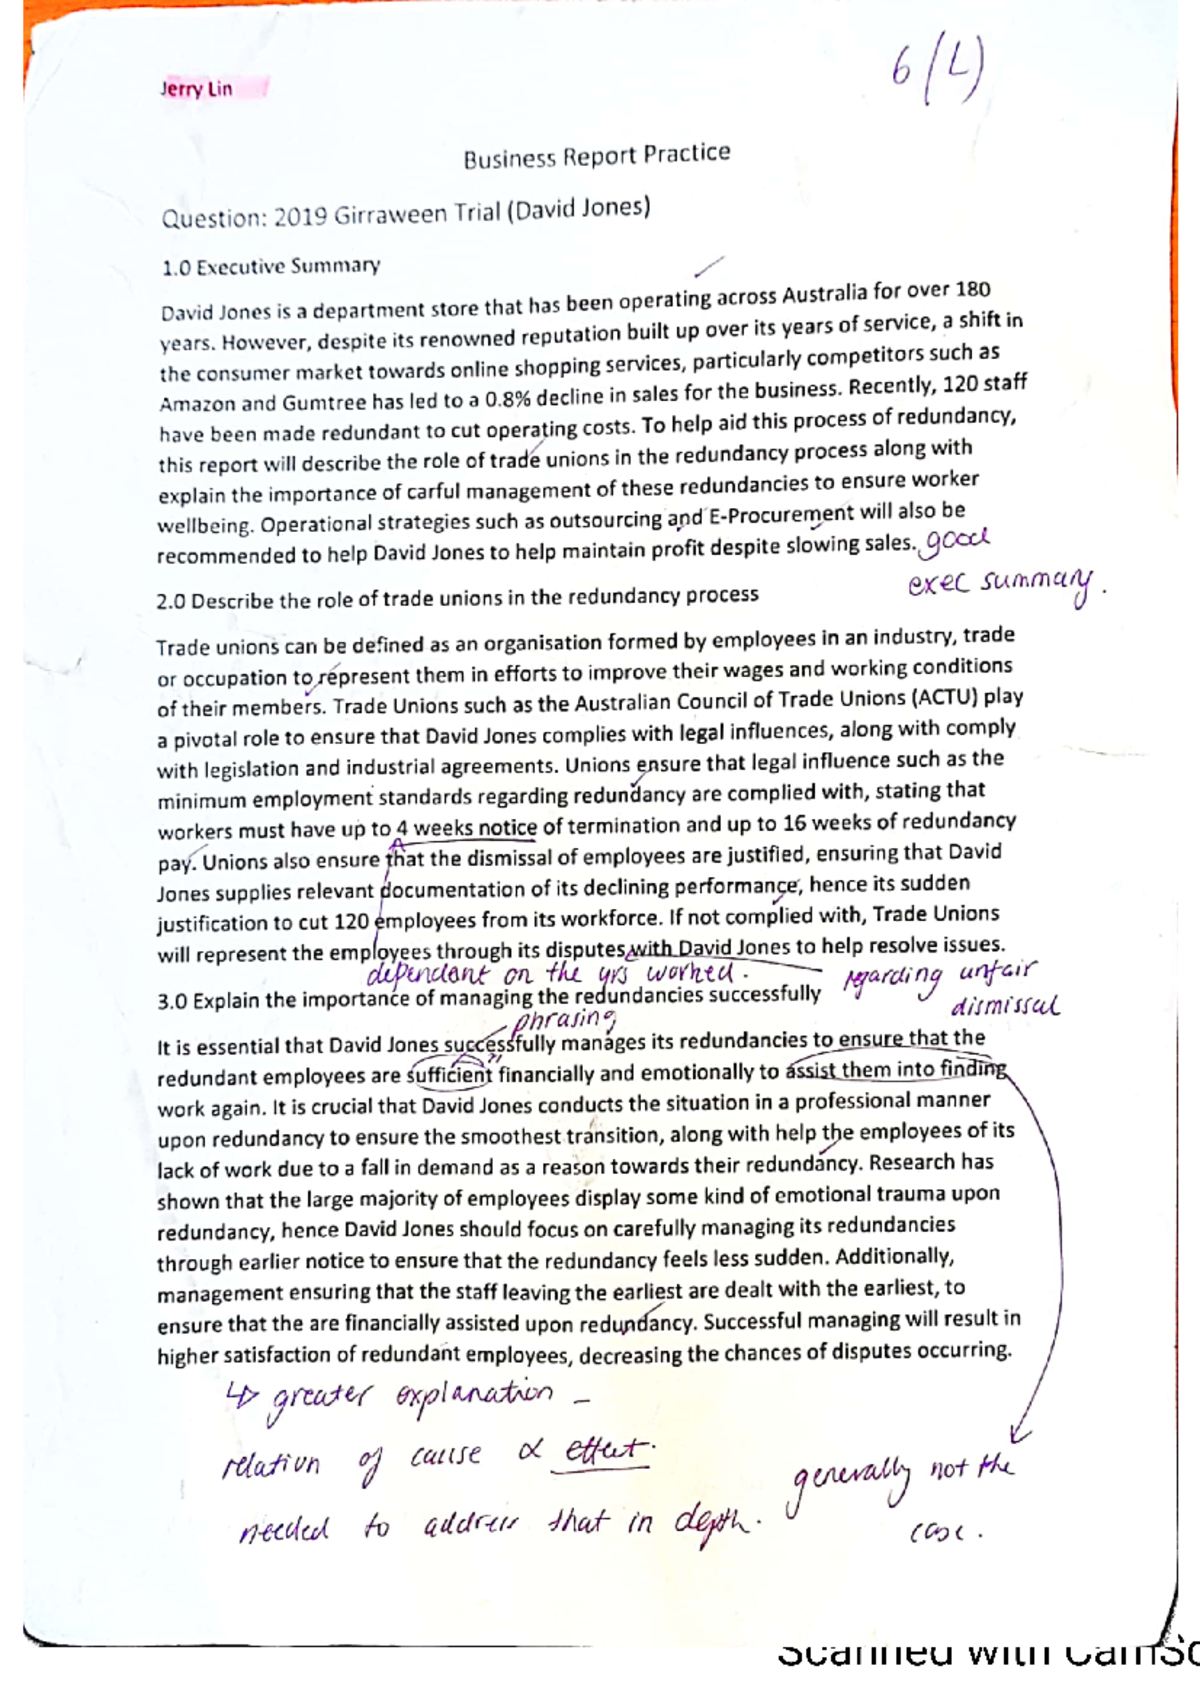 6 (L)
Jerry Lin
Business Report Practice
Question: 2019 Girraween Trial (David Jones)
1.0 Executive Summary
David Jones is a department store that has been operating across Australia for over 180
years. However, despite its renowned reputation built up over its years of service, a shift in
the consumer market towards online shopping services, particularly competitors such as
Amazon and Gumtree has led to a 0.8% decline in sales for the business. Recently, 120 staff
have been made redundant to cut operating costs. To help aid this process of redundancy,
this report will describe the role of trade unions in the redundancy process along with
explain the importance of carful management of these redundancies to ensure worker
wellbeing. Operational strategies such as outsourcing and E-Procurement will also be
recommended to help David Jones to help maintain profit despite slowing sales. good
exec summary.
2.0 Describe the role of trade unions in the redundancy process
Trade unions can be defined as an organisation formed by employees in an industry, trade
or occupation to represent them in efforts to improve their wages and working conditions
of their members. Trade Unions such as the Australian Council of Trade Unions (ACTU) play
a pivotal role to ensure that David Jones complies with legal influences, along with comply
with legislation and industrial agreements. Unions ensure that legal influence such as the
minimum employment standards regarding redundancy are complied with, stating that
workers must have up to 4 weeks notice of termination and up to 16 weeks of redundancy
pay. Unions also ensure that the dismissal of employees are justified, ensuring that David
Jones supplies relevant documentation of its declining performance, hence its sudden
justification to cut 120 employees from its workforce. If not complied with, Trade Unions
will represent the employees through its disputes with David Jones to help resolve issues.
dependant on the yrs worked.
regarding unfair
dismissal
3.0 Explain the importance of managing the redundancies successfully
phrasing
It is essential that David Jones successfully manages its redundancies to ensure that the
redundant employees are sufficient financially and emotionally to assist them into finding
work again. It is crucial that David Jones conducts the situation in a professional manner
upon redundancy to ensure the smoothest transition, along with help the employees of its
lack of work due to a fall in demand as a reason towards their redundancy. Research has
shown that the large majority of employees display some kind of emotional trauma upon
redundancy, hence David Jones should focus on carefully managing its redundancies
through earlier notice to ensure that the redundancy feels less sudden. Additionally,
management ensuring that the staff leaving the earliest are dealt with the earliest, to
ensure that the are financially assisted upon redundancy. Successful managing will result in
higher satisfaction of redundant employees, decreasing the chances of disputes occurring.
↳ greater explanation -
relation of cause & effect.
needed to address that in depth.
generally not the
case.
Scanned with CamSc